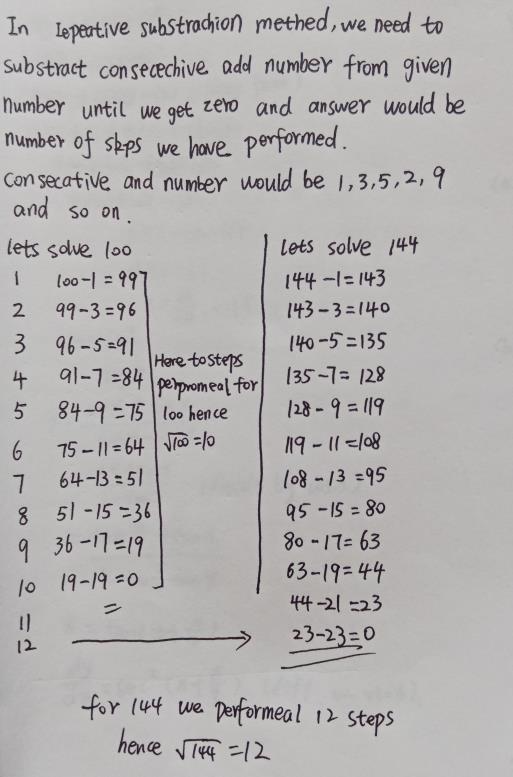 In Iepeative substrachion methed, we need to
substract consecechive add number from given
number until we get zero and answer would be
number of skps we have performed.
consecative and number would be 1,3,5,2,9
and so on.
lets solve 100
1 100-1=99
2 99-3=96
3 96-5=91
4 91-7=84
5 84-9=75
6 75-11=64
7 64-13=51
8 51-15=36
9 36-17=19
10 19-19=0
=
11
12
Here to steps
perpromeal for
100 hence
√100=10
Lets solve 144
144-1=143
143-3=140
140-5=135
135-7=128
128-9=119
119-11=108
108-13=95
95-15=80
80-17=63
63-19=44
44-21=23
23-23=0
for 144 we performeal 12 steps
hence √144=12